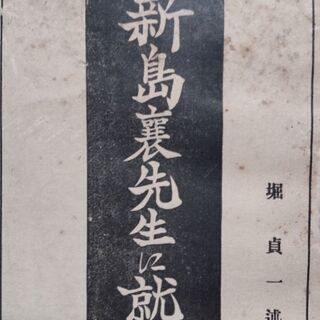 新島襄先生に就
堀貞一述